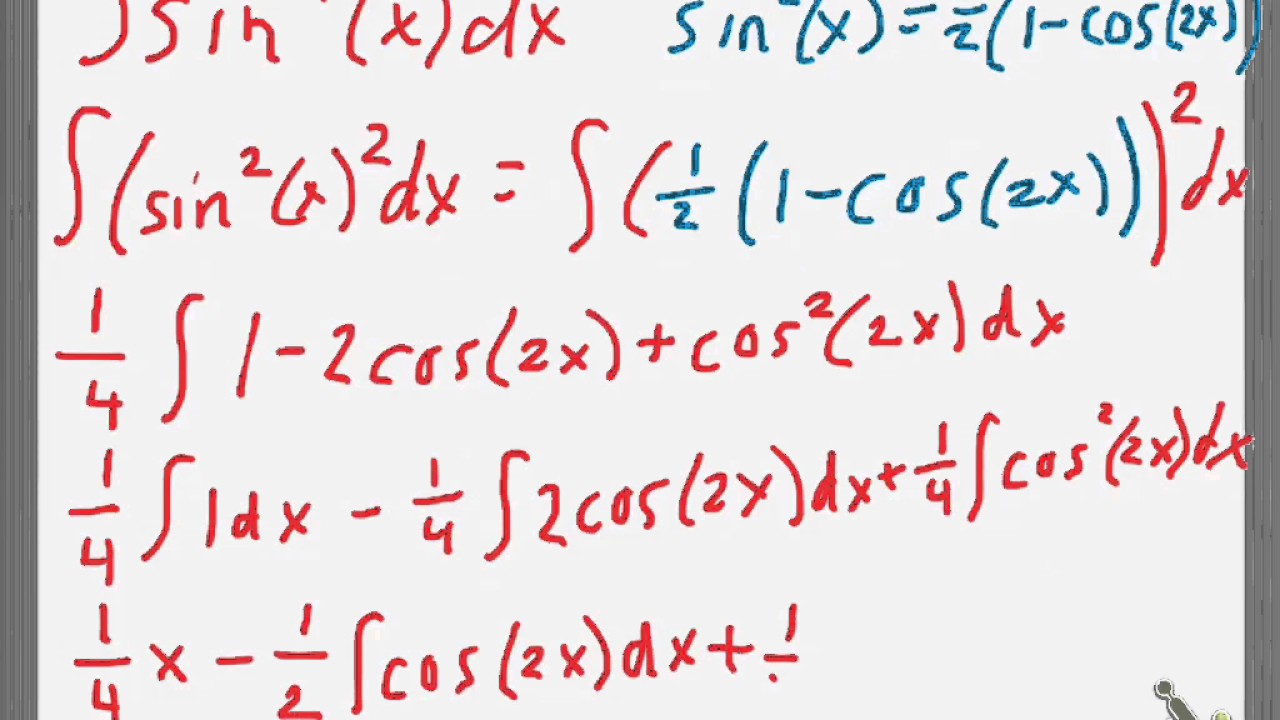 ∫sin (x)dx sin²(x)=½(1-cos(2x))
∫(sin²(x)²dx = ∫(½(1-cos(2x)))²dx
¼ ∫ 1-2cos(2x)+cos²(2x)dx
¼ ∫1dx - ¼ ∫2cos(2x)dx+¼∫cos²(2x)dx
¼x - ½ ∫cos(2x)dx+1